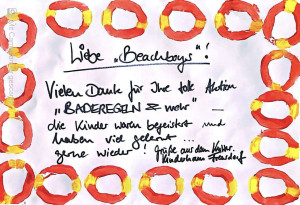 Liebe „Beachboys"!
Vielen Dank für Ihre tolle Aktion
„BADEREGELN & mehr" –
die Kinder waren begeistert und
haben viel gelernt ...
gerne wieder! Grüße aus dem
Kinderhaus